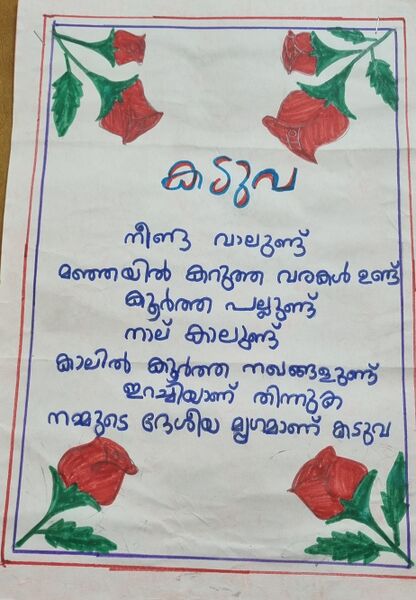 കടുവ
നീണ്ട വാലുണ്ട്
മഞ്ഞയിൽ കറുത്ത വരകൾ ഉണ്ട്
കൂർത്ത പല്ലുണ്ട്
നാല് കാലുണ്ട്
കാലിൽ കൂർത്ത നഖങ്ങളുണ്ട്
ഇറച്ചിയാണ് തിന്നുക
നമ്മുടെ ദേശീയ മൃഗമാണ് കടുവ